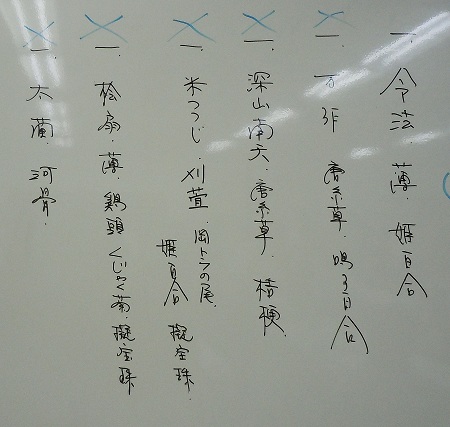 一. 令法. 薄. 姫百合
一. 万作 唐糸草. 鳴子百合
一. 深山南天. 唐糸草. 桔梗.
一. 米つつじ. 刈萱. 岡トラの尾. 姫百合 擬宝珠.
一. 桧扇. 薄. 鶏頭 くじゃく草. 擬宝珠
一. 太藺. 河骨.